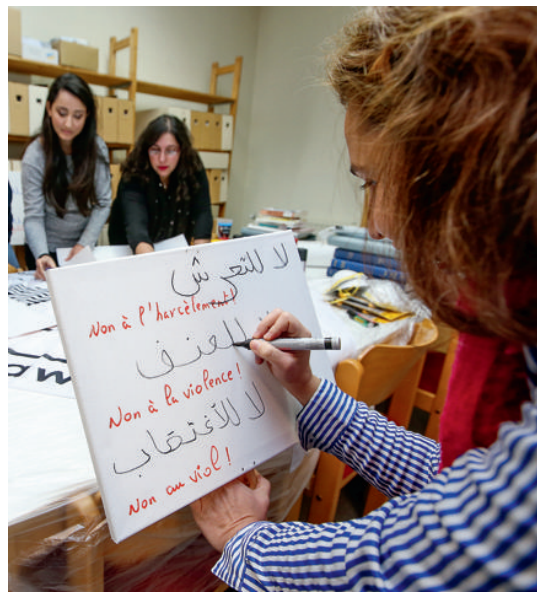 لا للتحرش
Non à l'harcèlement!
لا للعنف
Non à la violence!
لا للاغتصاب
Non au viol!